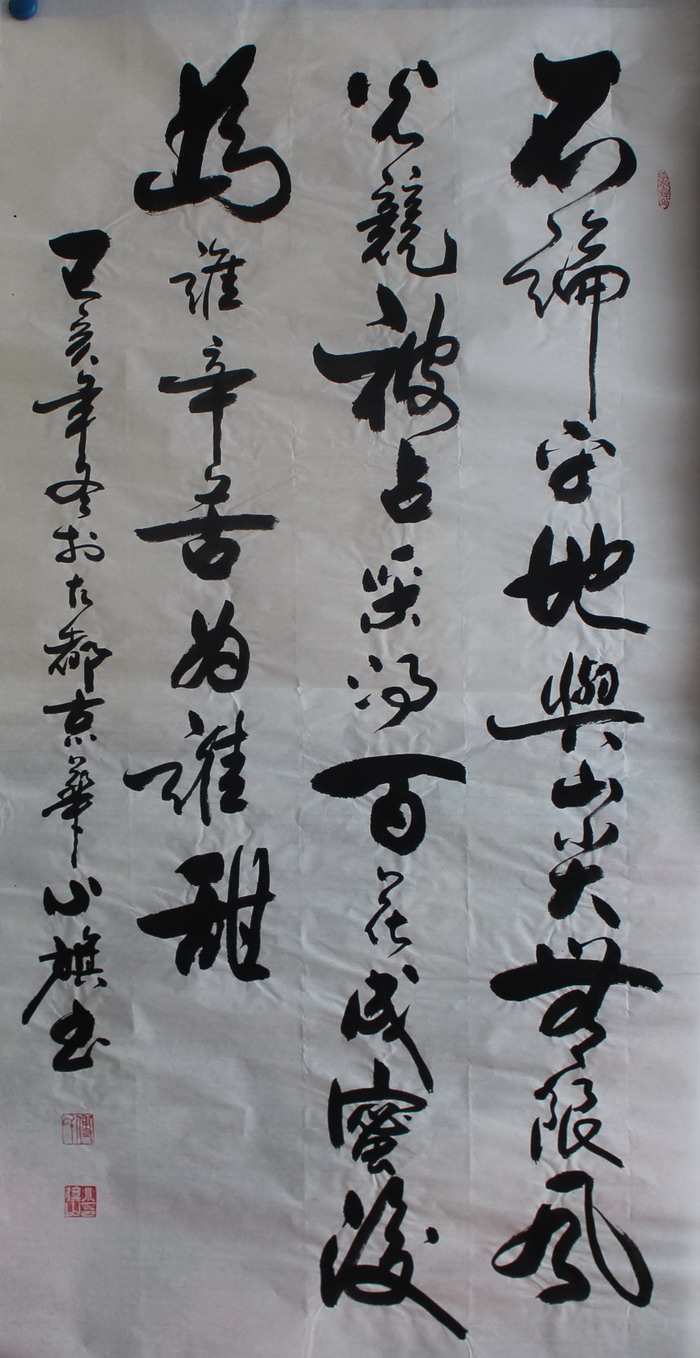 不論平地與山尖無限風
光競被占采得百花成蜜後
為誰辛苦为誰甜
己亥年冬於古都京華小旗书